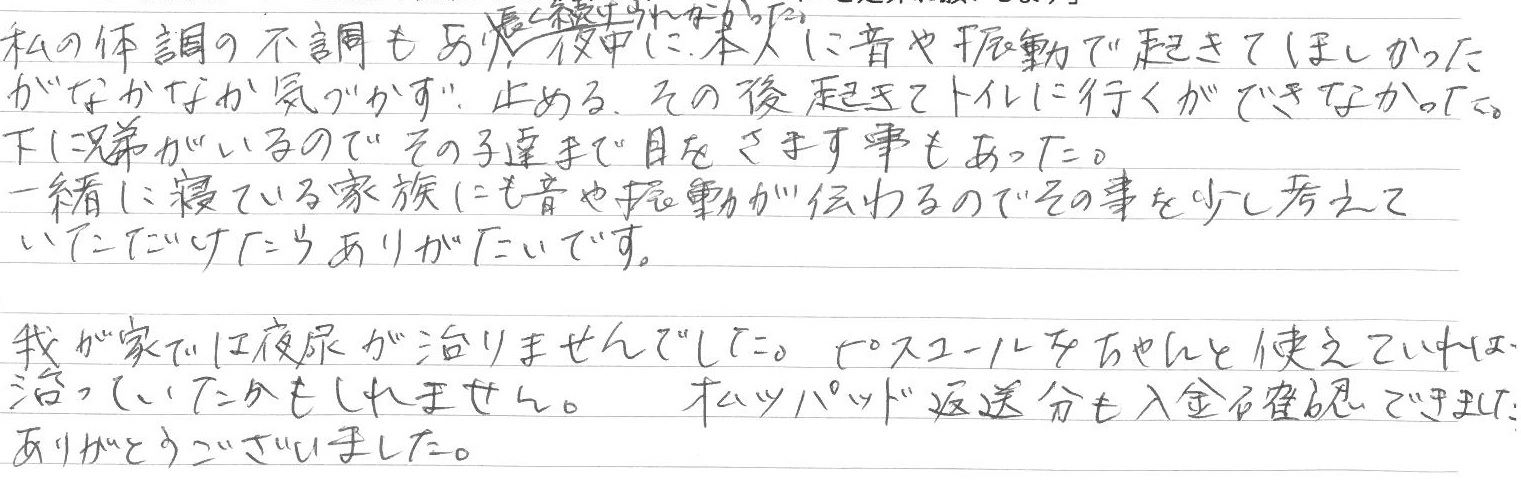 長く続けられなかった。
私の体調の不調もあり、夜中に、本人に音や振動で起きてほしかった
がなかなか気づかず、止める、その後起きてトイレに行くができなかった。
下に兄弟がいるのでその子達まで目をさます事もあった。
一緒に寝ている家族にも音や振動が伝わるのでその事を少し考えて
いただけたらありがたいです。
我が家では夜尿が治りませんでした。ピスコールをちゃんと使えていれば
治っていたかもしれません。 オムツパッド返送分も入金確認できました
ありがとうございました。